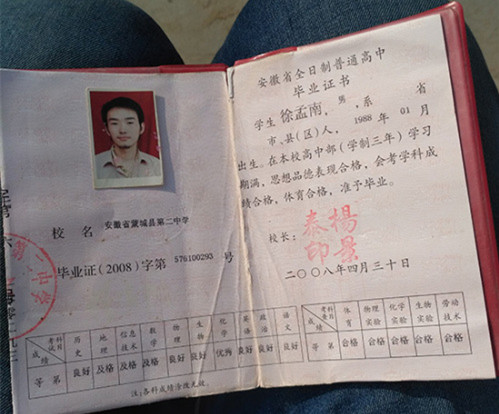 校 名 安徽省蒙城县第二中学
毕业证(2008)字第 576100293 号
考试科目 历史 地理 信息技术 数学 物理 生物 化学 英语 政治 语文
成绩
等第 良好 及格 及格 及格 良好 良好 优秀 良好 良好 良好
注:各科成绩涂改无效。
安徽省全日制普通高中
毕业证书
学生 徐孟南,男,系 省
市、县(区)人, 1988 年 01 月
出生。在本校高中部(学制三年)学习
期满,思想品德表现合格,会考学科成
绩合格,体育合格,准予毕业。
校长:
楊景泰印
二〇〇八年四月三十日
成绩 体育 物理实验 化学实验 生物实验 劳动技术
等第 合格 合格 合格 合格 合格